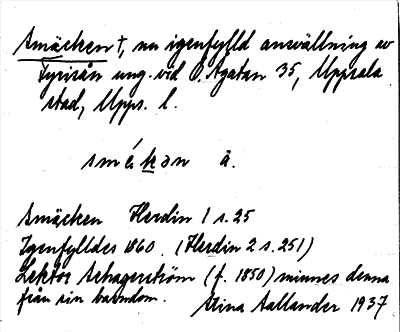 Smäcken †, nu igenfylld ansvällning av
Fyrisån ung. vid Ö. Ågatan 35, Uppsala
stad, Upps. l.
smékən å.
Smäcken Herdin 1 s. 25
Igenfylldes 1860. (Herdin 2 s. 251)
Lektor Schagerström (f. 1850) minnes denna
från sin barndom.
Stina Aallander 1937